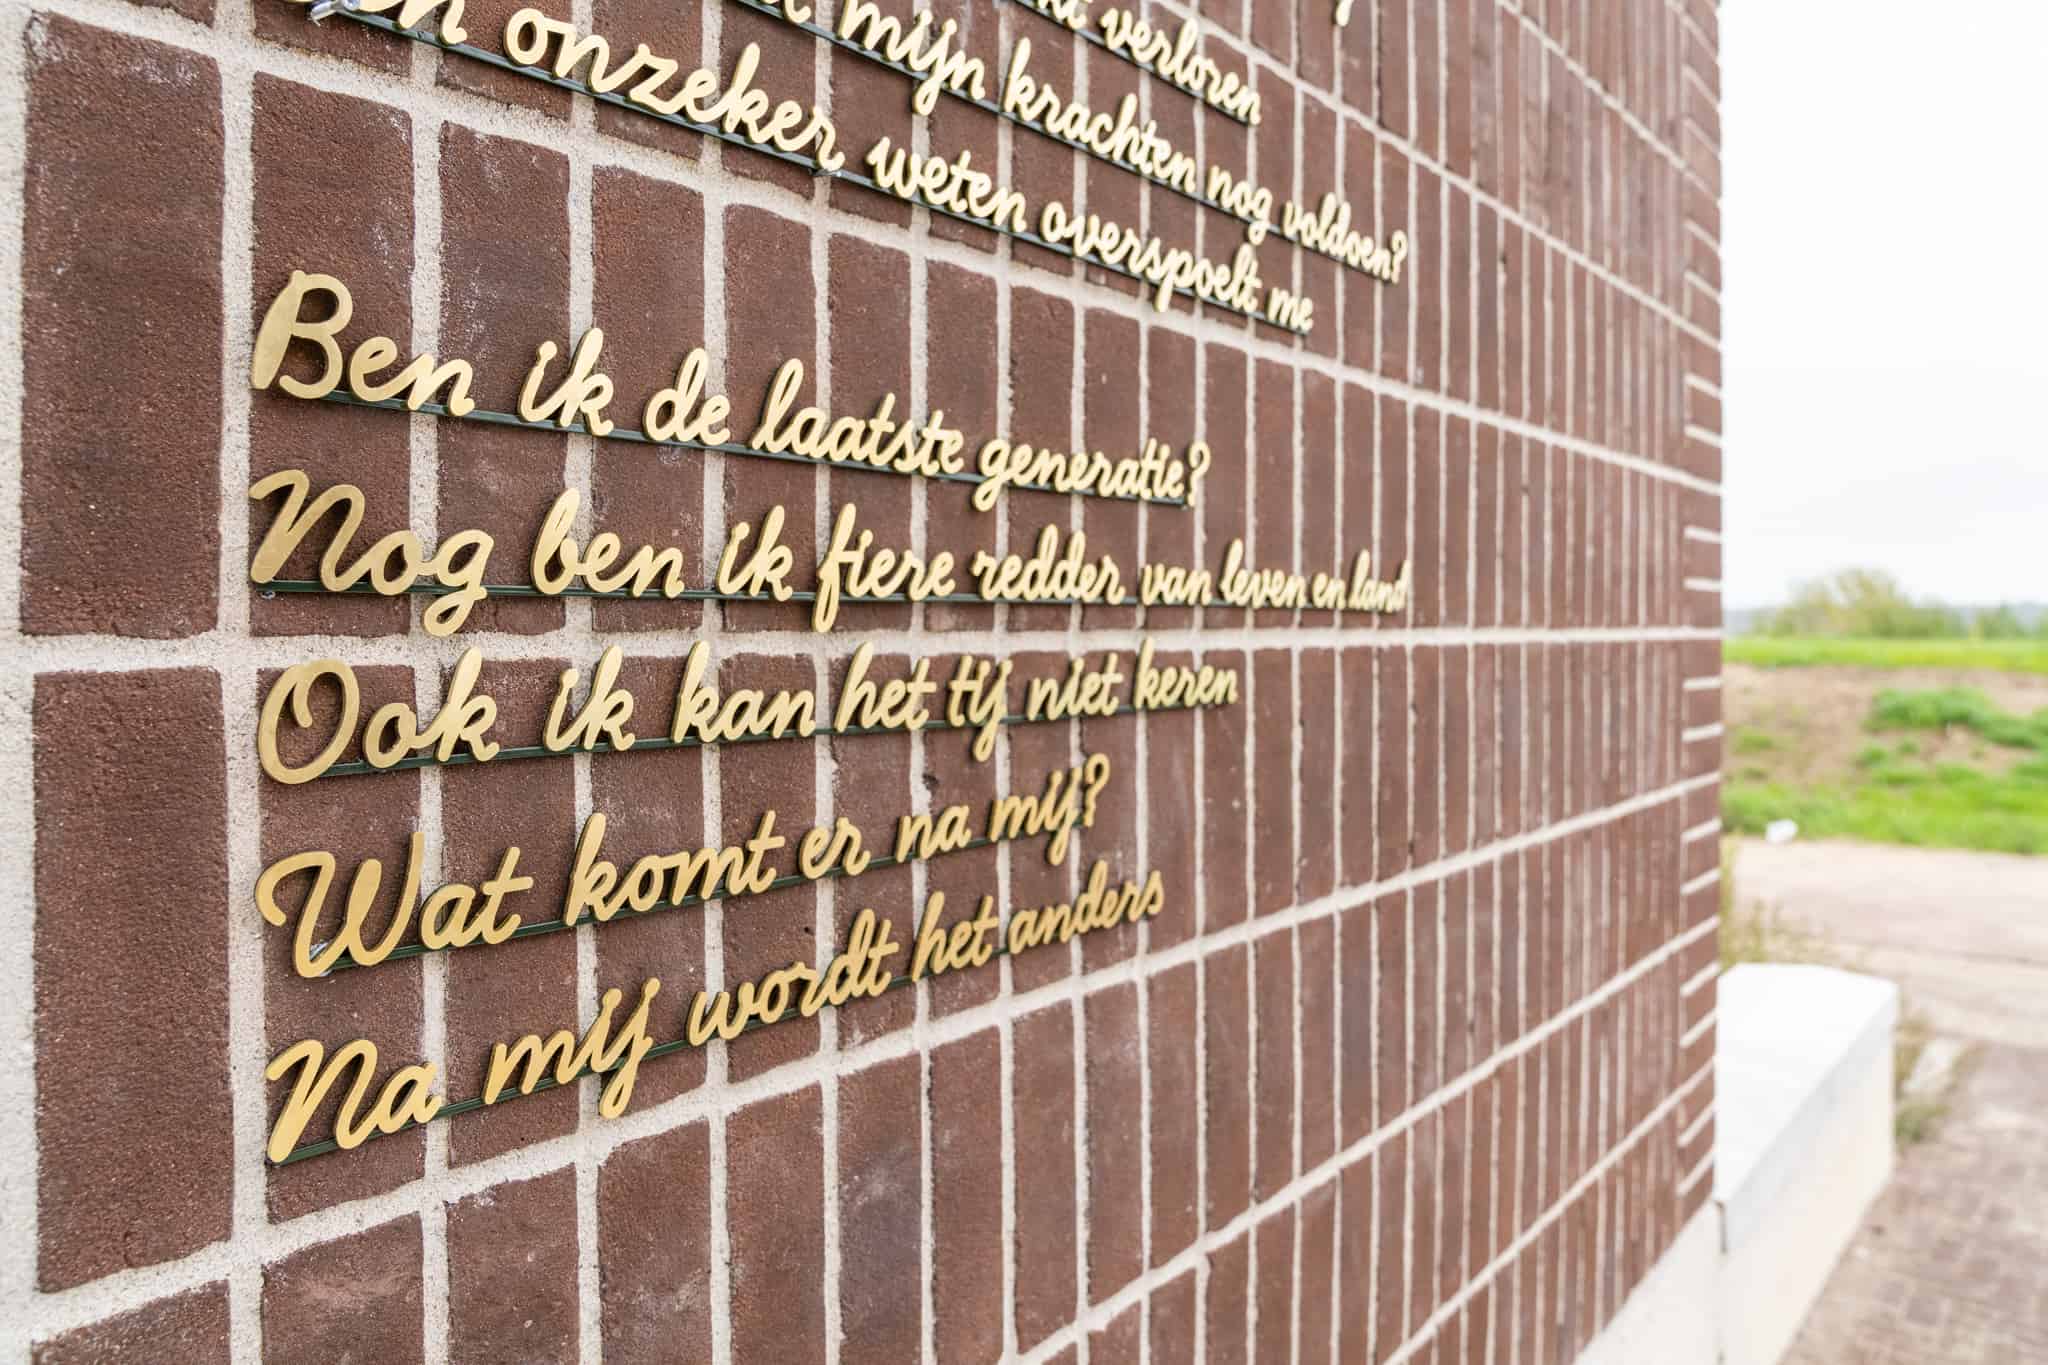 verloren
mijn krachten nog voldoen?
onzeker weten overspoelt me
Ben ik de laatste generatie?
Nog ben ik fiere redder van leven en land
Ook ik kan het tij niet keren
Wat komt er na mij?
Na mij wordt het anders